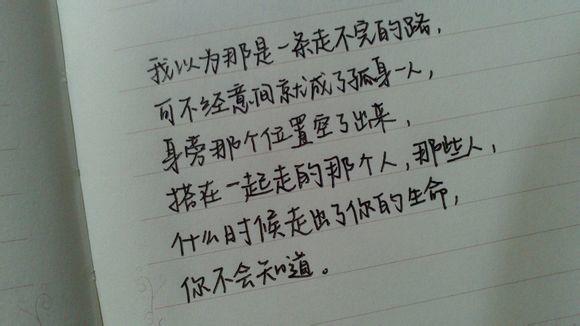 我以为那是一条走不完的路，
可不经意间就成了孤身一人，
身旁那个位置空了出来，
搭在一起走的那个人，那些人，
什么时候走出了你的生命，
你不会知道。